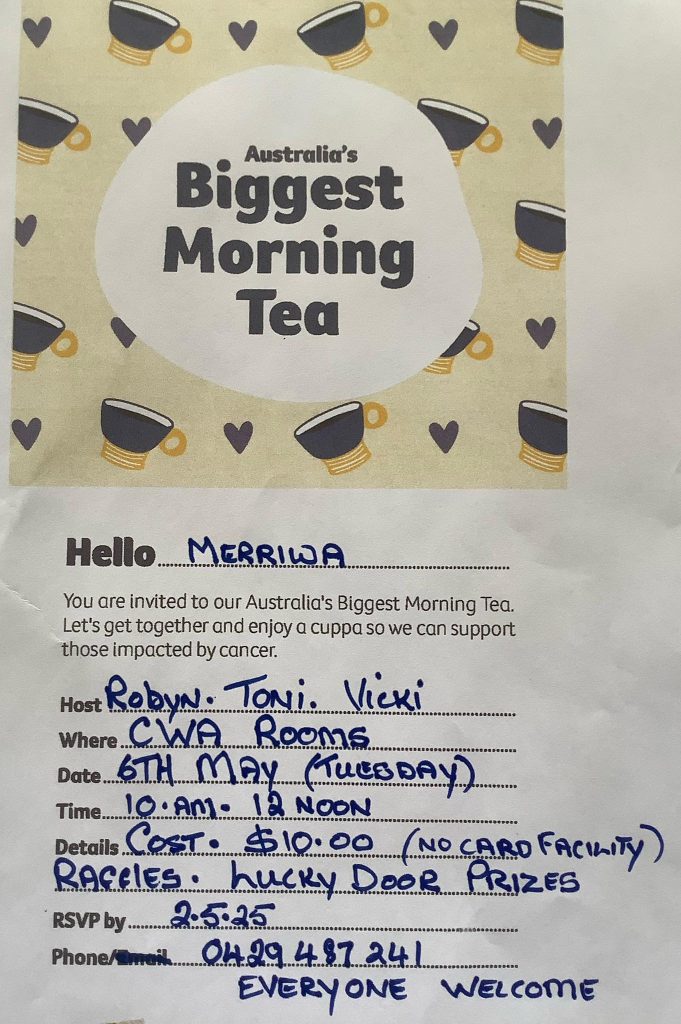 Australia's
Biggest
Morning
Tea
Hello MERRIWA
You are invited to our Australia's Biggest Morning Tea.
Let's get together and enjoy a cuppa so we can support
those impacted by cancer.
Host Robyn. Toni. Vicki
Where CWA Rooms
Date 6TH MAY (TUESDAY)
Time 10.AM - 12 NOON
Details COST. $10.00 (NO CARD FACILITY)
RAFFLES. LUCKY DOOR PRIZES
RSVP by 2.5.25
Phone/Email 0429 487 241
EVERYONE WELCOME